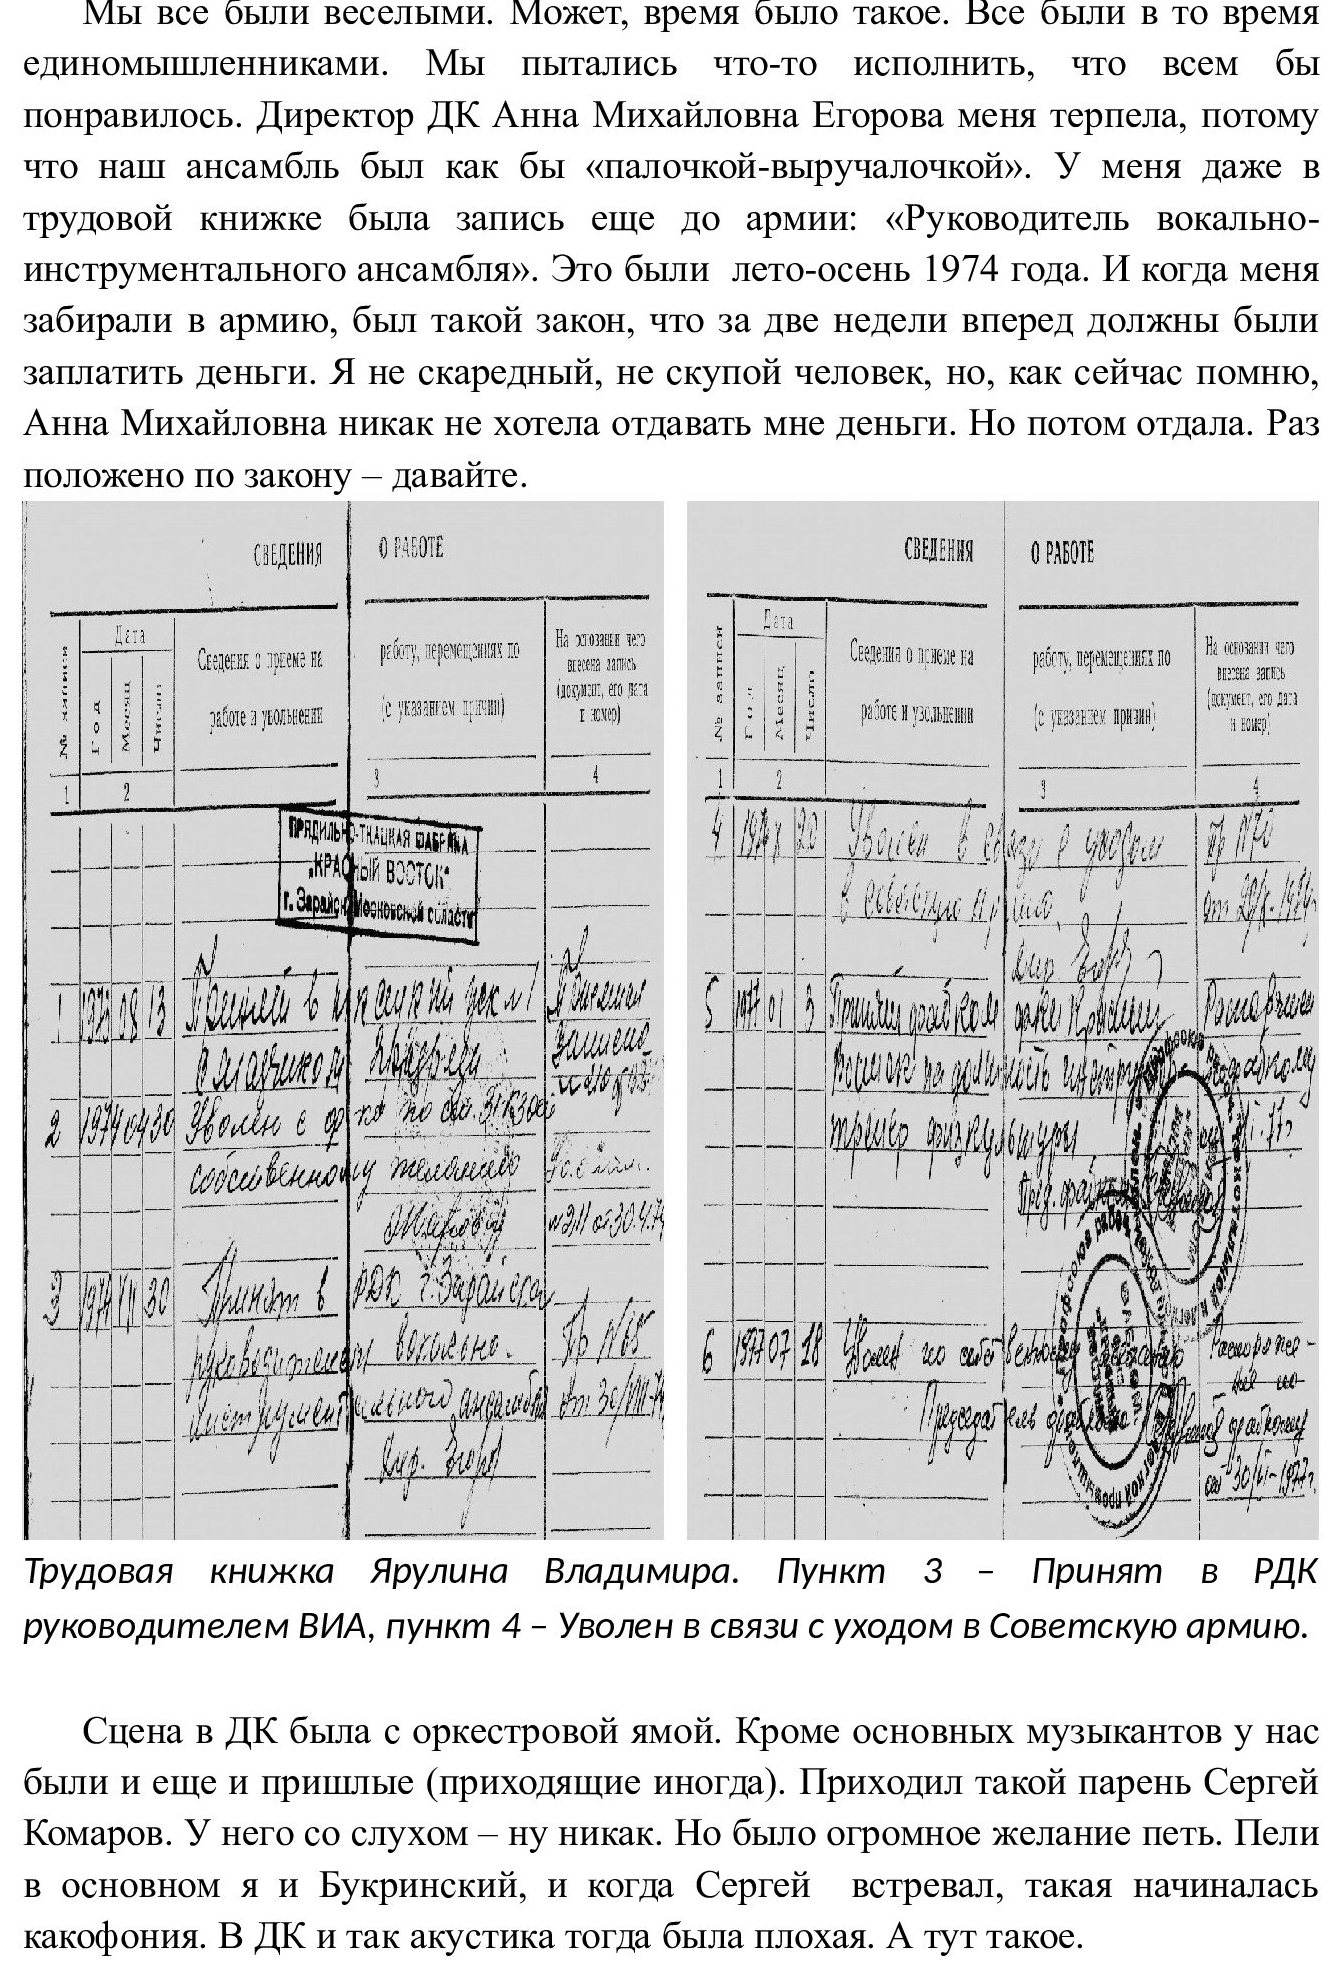 Мы все были веселыми. Может, время было такое. Все были в то время
единомышленниками. Мы пытались что-то исполнить, что всем бы
понравилось. Директор ДК Анна Михайловна Егорова меня терпела, потому
что наш ансамбль был как бы «палочкой-выручалочкой». У меня даже в
трудовой книжке была запись еще до армии: «Руководитель вокально-
инструментального ансамбля». Это были лето-осень 1974 года. И когда меня
забирали в армию, был такой закон, что за две недели вперед должны были
заплатить деньги. Я не скаредный, не скупой человек, но, как сейчас помню,
Анна Михайловна никак не хотела отдавать мне деньги. Но потом отдала. Раз
положено по закону – давайте.
СВЕДЕНИЯ О РАБОТЕ
№ записи
Дата
Год
Месяц
Число
Сведения о приеме на работу, перемещениях по
работе и увольнении (с указанием причин)
На основании чего
внесена запись
(документ, его дата
и номер)
1 2 3 4
ПРЯДИЛЬНО-ТКАЦКАЯ ФАБРИКА
„КРАСНЫЙ ВОСТОК"
г. Зарайск Московской области
1 1973 08 13 Принят в
2 1974 04 30 Уволен с ф-ки по ст. 31 КЗОТ
собственному желанию
№211 от 30.4.74
3 1974 VII 30 Принят в РДК г. Зарайска
руководителем вокально- Пр №65
инструментального ансамбля от 30/VII-74
Дир. Егоров
СВЕДЕНИЯ О РАБОТЕ
№ записи
Дата
Год
Месяц
Число
Сведения о приеме на работу, перемещениях по
работе и увольнении (с указанием причин)
На основании чего
внесена запись
(документ, его дата
и номер)
1 2 3 4
4 1974 X 20 Уволен в связи с уходом Пр №70
в советскую армию. от 20/X-1974г
Дир. Егор
5 1977 01 3 Принят фабкомом ф-ки Красный
Восток на должность инструктора
тренер физкультуры
Пред. фабкома
6 1977 07 18 Уволен по собственному желанию Распоряже-
ние по
Председатель фабкома фабкому
от 30/VI-1977г.
Трудовая книжка Ярулина Владимира. Пункт 3 – Принят в РДК
руководителем ВИА, пункт 4 – Уволен в связи с уходом в Советскую армию.
Сцена в ДК была с оркестровой ямой. Кроме основных музыкантов у нас
были и еще и пришлые (приходящие иногда). Приходил такой парень Сергей
Комаров. У него со слухом – ну никак. Но было огромное желание петь. Пели
в основном я и Букринский, и когда Сергей встревал, такая начиналась
какофония. В ДК и так акустика тогда была плохая. А тут такое.